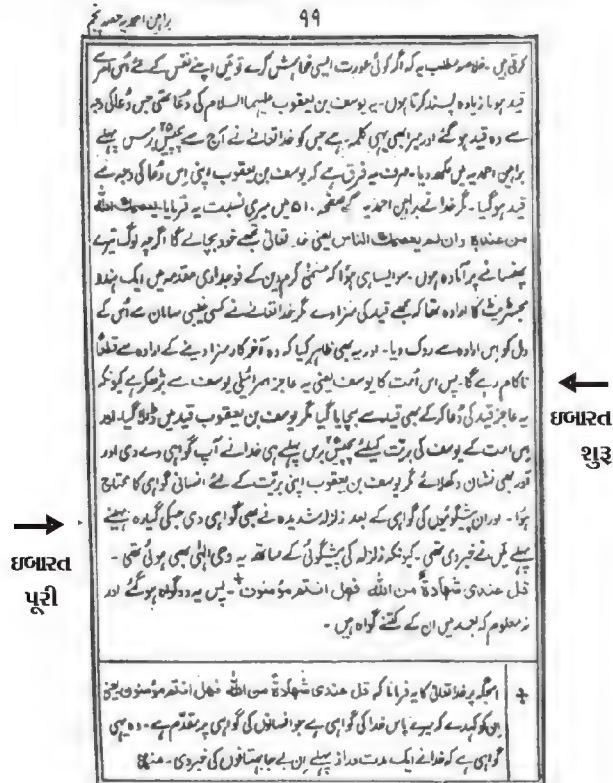 براہین احمدیہ حصہ پنجم
۹۹
کرتی ہیں۔ خلاصہ مطلب یہ کہ اگر کوئی عورت ایسی خواہش کرے تو میں اپنے نفس کے لئے اُس امر سے
قید ہونا زیادہ پسند کرتا ہوں۔ یہ یوسف بن یعقوب علیہما السلام کی دُعا تھی جس دُعا کی وجہ
سے وہ قید ہو گئے اور میرا بھی یہی کلمہ ہے جس کو خدا تعالیٰ نے آج سے پچیس۲۵ برس پہلے
براہین احمدیہ میں لکھ دیا۔ صرف یہ فرق ہے کہ یوسف بن یعقوب اپنی اِس دُعا کی وجہ سے
قید ہو گیا۔ مگر خدا نے براہین احمدیہ کے صفحہ ۵۱۰ میں میری نسبت یہ فرمایا۔ یعصمک اللہ
من عندہٖ وان لم یعصمک الناس یعنی خدا تعالیٰ تجھے خود بچالے گا اگرچہ لوگ تیرے
پھنسانے پر آمادہ ہوں۔ سو ایسا ہی ہوا کہ منشی کرم دین کے فوجداری مقدمہ میں ایک ہندو
مجسٹریٹ کا ارادہ تھا کہ مجھے قید کی سزا دے مگر خدا تعالیٰ نے کسی غیبی سامان سے اُس کے
دل کو اِس ارادہ سے روک دیا۔ اور یہ بھی ظاہر کیا کہ وہ آخر کار سزا دینے کے ارادہ سے قطعاً
ناکام رہے گا۔ پس اس اُمت کا یوسف یعنی یہ عاجز اسرائیلی یوسف سے بڑھ کر ہے کیونکہ
یہ عاجز قید کی دُعا کر کے بھی قید سے بچایا گیا مگر یوسف بن یعقوب قید میں ڈالا گیا۔ اور
اِس امت کے یوسف کی بریّت کیلئے پچیس۲۵ برس پہلے ہی خدا نے آپ گواہی دے دی اور
اَور بھی نشان دکھلائے مگر یوسف بن یعقوب اپنی بریّت کے لئے انسانی گواہی کا محتاج
ہوا۔ اور ان پیشگوئیوں کی گواہی کے بعد زلزلہ شدیدہ نے بھی گواہی دی جسکی گیارہ مہینے
پہلے میں نے خبر دی تھی۔ کیونکہ زلزلہ کی پیشگوئی کے ساتھ یہ وحی الٰہی بھی ہوئی تھی۔
قل عندی شہادۃ من اللہ فھل انتم مؤمنون+۔ پس یہ دو گواہ ہو گئے اور
نہ معلوم کہ بعد میں ان کے کتنے گواہ ہیں۔
ઇબારત
શુરૂ
ઇબારત
પૂરી
+ اس جگہ پر خدا تعالیٰ کا یہ فرمانا کہ قل عندی شہادۃ من اللہ فھل انتم مؤمنون یعنی
اِن کو کہدے کہ میرے پاس خدا کی گواہی ہے جو انسانوں کی گواہی پر مقدم ہے۔ وہ یہی
گواہی ہے کہ خدا نے ایک مدت دراز پہلے اِن بے جا بہتانوں کی خبر دی۔ منہ